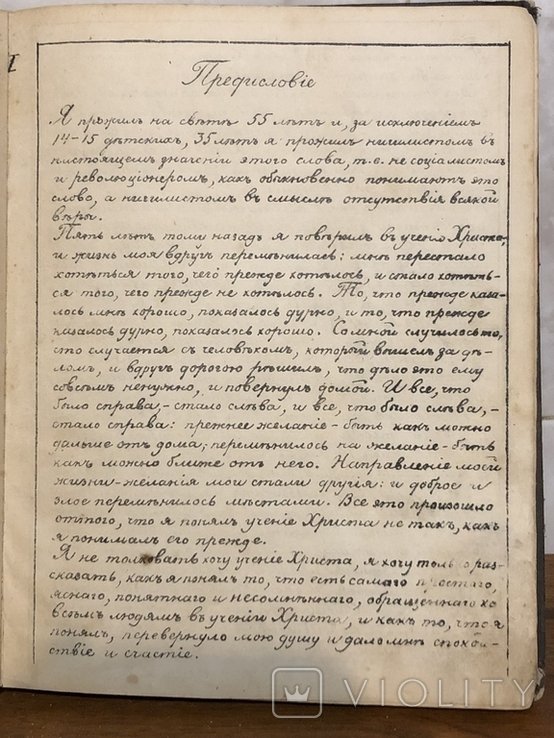 I
Предисловіе
Я прожилъ на свѣтѣ 55 лѣтъ и, за исключеніемъ
14-15 дѣтскихъ, 35 лѣтъ я прожилъ нигилистомъ въ
настоящемъ значеніи этого слова, т.е. не соціалистомъ
и революціонеромъ, какъ обыкновенно понимаютъ это
слово, а нигилистомъ въ смыслѣ отсутствія всякой
вѣры.
Пять лѣтъ тому назадъ я повѣрилъ въ ученіе Христа,
и жизнь моя вдругъ перемѣнилась: мнѣ перестало
хотѣться того, чего прежде хотѣлось, и стало хотѣть-
ся того, чего прежде не хотѣлось. То, что прежде каза-
лось мнѣ хорошо, показалось дурно, и то, что прежде
казалось дурно, показалось хорошо. Со мной случилось то,
что случается съ человѣкомъ, который вышелъ за дѣ-
ломъ, и вдругъ дорогою рѣшилъ, что дѣло это ему
совсѣмъ ненужно, и повернулъ домой. И все, что
было справа, - стало слѣва, и все, что было слѣва, -
стало справа: прежнее желаніе - быть какъ можно
дальше отъ дома; перемѣнилось на желаніе - быть
какъ можно ближе отъ него. Направленіе моей
жизни - желанія мои стали другія: и доброе и
злое перемѣнилось мѣстами. Все это произошло
оттого, что я понялъ ученіе Христа не такъ, какъ
я понималъ его прежде.
Я не толковать хочу ученіе Христа, я хочу только раз-
сказать, какъ я понялъ то, что есть самаго простаго,
яснаго, понятнаго и несомнѣннаго, обращеннаго ко
всѣмъ людямъ въ ученіи Христа, и какъ то, что я
понялъ, перевернуло мою душу и дало мнѣ спокой-
ствіе и счастіе.
VIOLITY